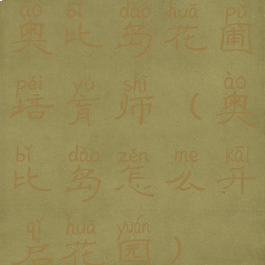 ào bǐ dǎo huā pǔ
奥比岛花圃
péi yù shī ào
培育师（奥
bǐ dǎo zěn me kāi
比岛怎么开
qǐ huā yuán
启花园）